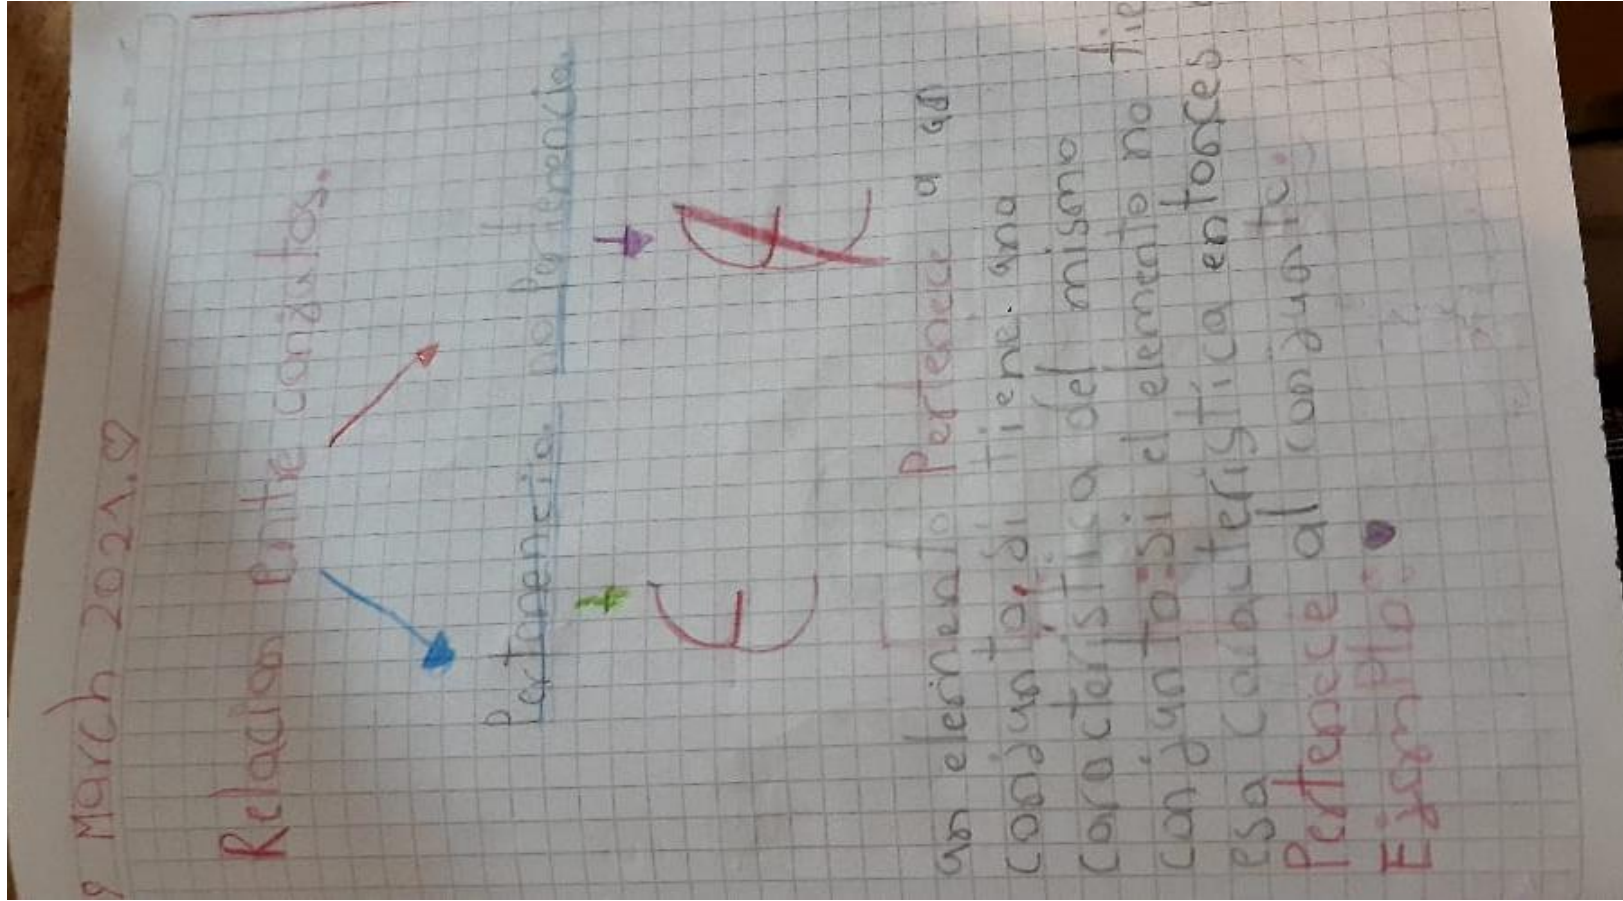 9 March 2021.♡
Relacion entre conjutos.
Pertenencia no Pertenencia
∈ ∉
un elemento Pertenece a un
conjunto, si tiene una
caracteristica del mismo
conjunto: Si el elemento no tie
esa caracteristica entonces
Pertenece al conjunto.
Ejemplo: